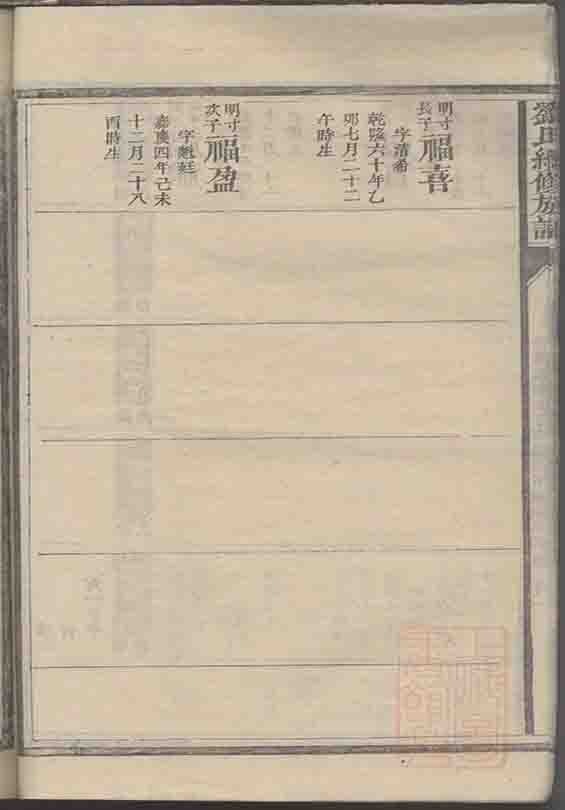 劉氏續修族譜
明寸
長子
福喜
字清希
乾隆六十年乙
卯七月二十二
午時生
明寸
次子
福盈
字魁廷
嘉慶四年己未
十二月二十八
酉時生